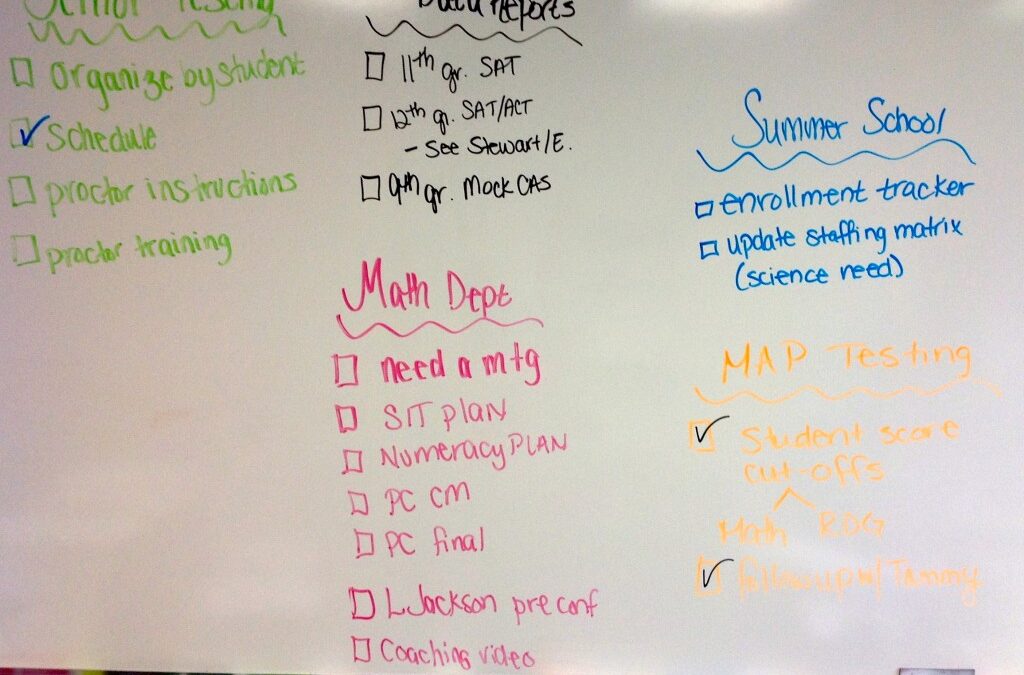 Senior Testing
☐ Organize by student
☑ Schedule
☐ proctor instructions
☐ proctor training
Data Reports
☐ 11th gr. SAT
☐ 12th gr. SAT/ACT
- See Stewart/E.
☐ 9th gr. Mock CAS
Math Dept
☐ need a mtg
☐ SIT PLAN
☐ Numeracy PLAN
☐ PC CM
☐ PC final
☐ L Jackson pre conf
☐ Coaching video
Summer School
☐ enrollment tracker
☐ update staffing matrix
(science need)
MAP Testing
☑ Student score
cut-offs
Math RDG
☑ follow up w/ Tammy